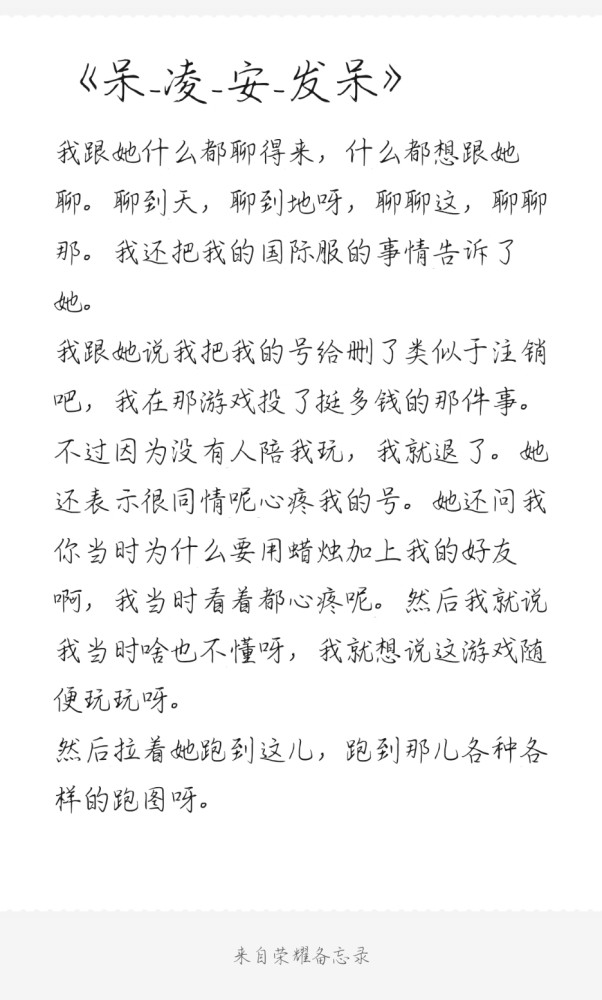 《呆-凌-安-发呆》
我跟她什么都聊得来，什么都想跟她
聊。聊到天，聊到地呀，聊聊这，聊聊
那。我还把我的国际服的事情告诉了
她。
我跟她说我把我的号给删了类似于注销
吧，我在那游戏投了挺多钱的那件事。
不过因为没有人陪我玩，我就退了。她
还表示很同情呢心疼我的号。她还问我
你当时为什么要用蜡烛加上我的好友
啊，我当时看着都心疼呢。然后我就说
我当时啥也不懂呀，我就想说这游戏随
便玩玩呀。
然后拉着她跑到这儿，跑到那儿各种各
样的跑图呀。
来自荣耀备忘录